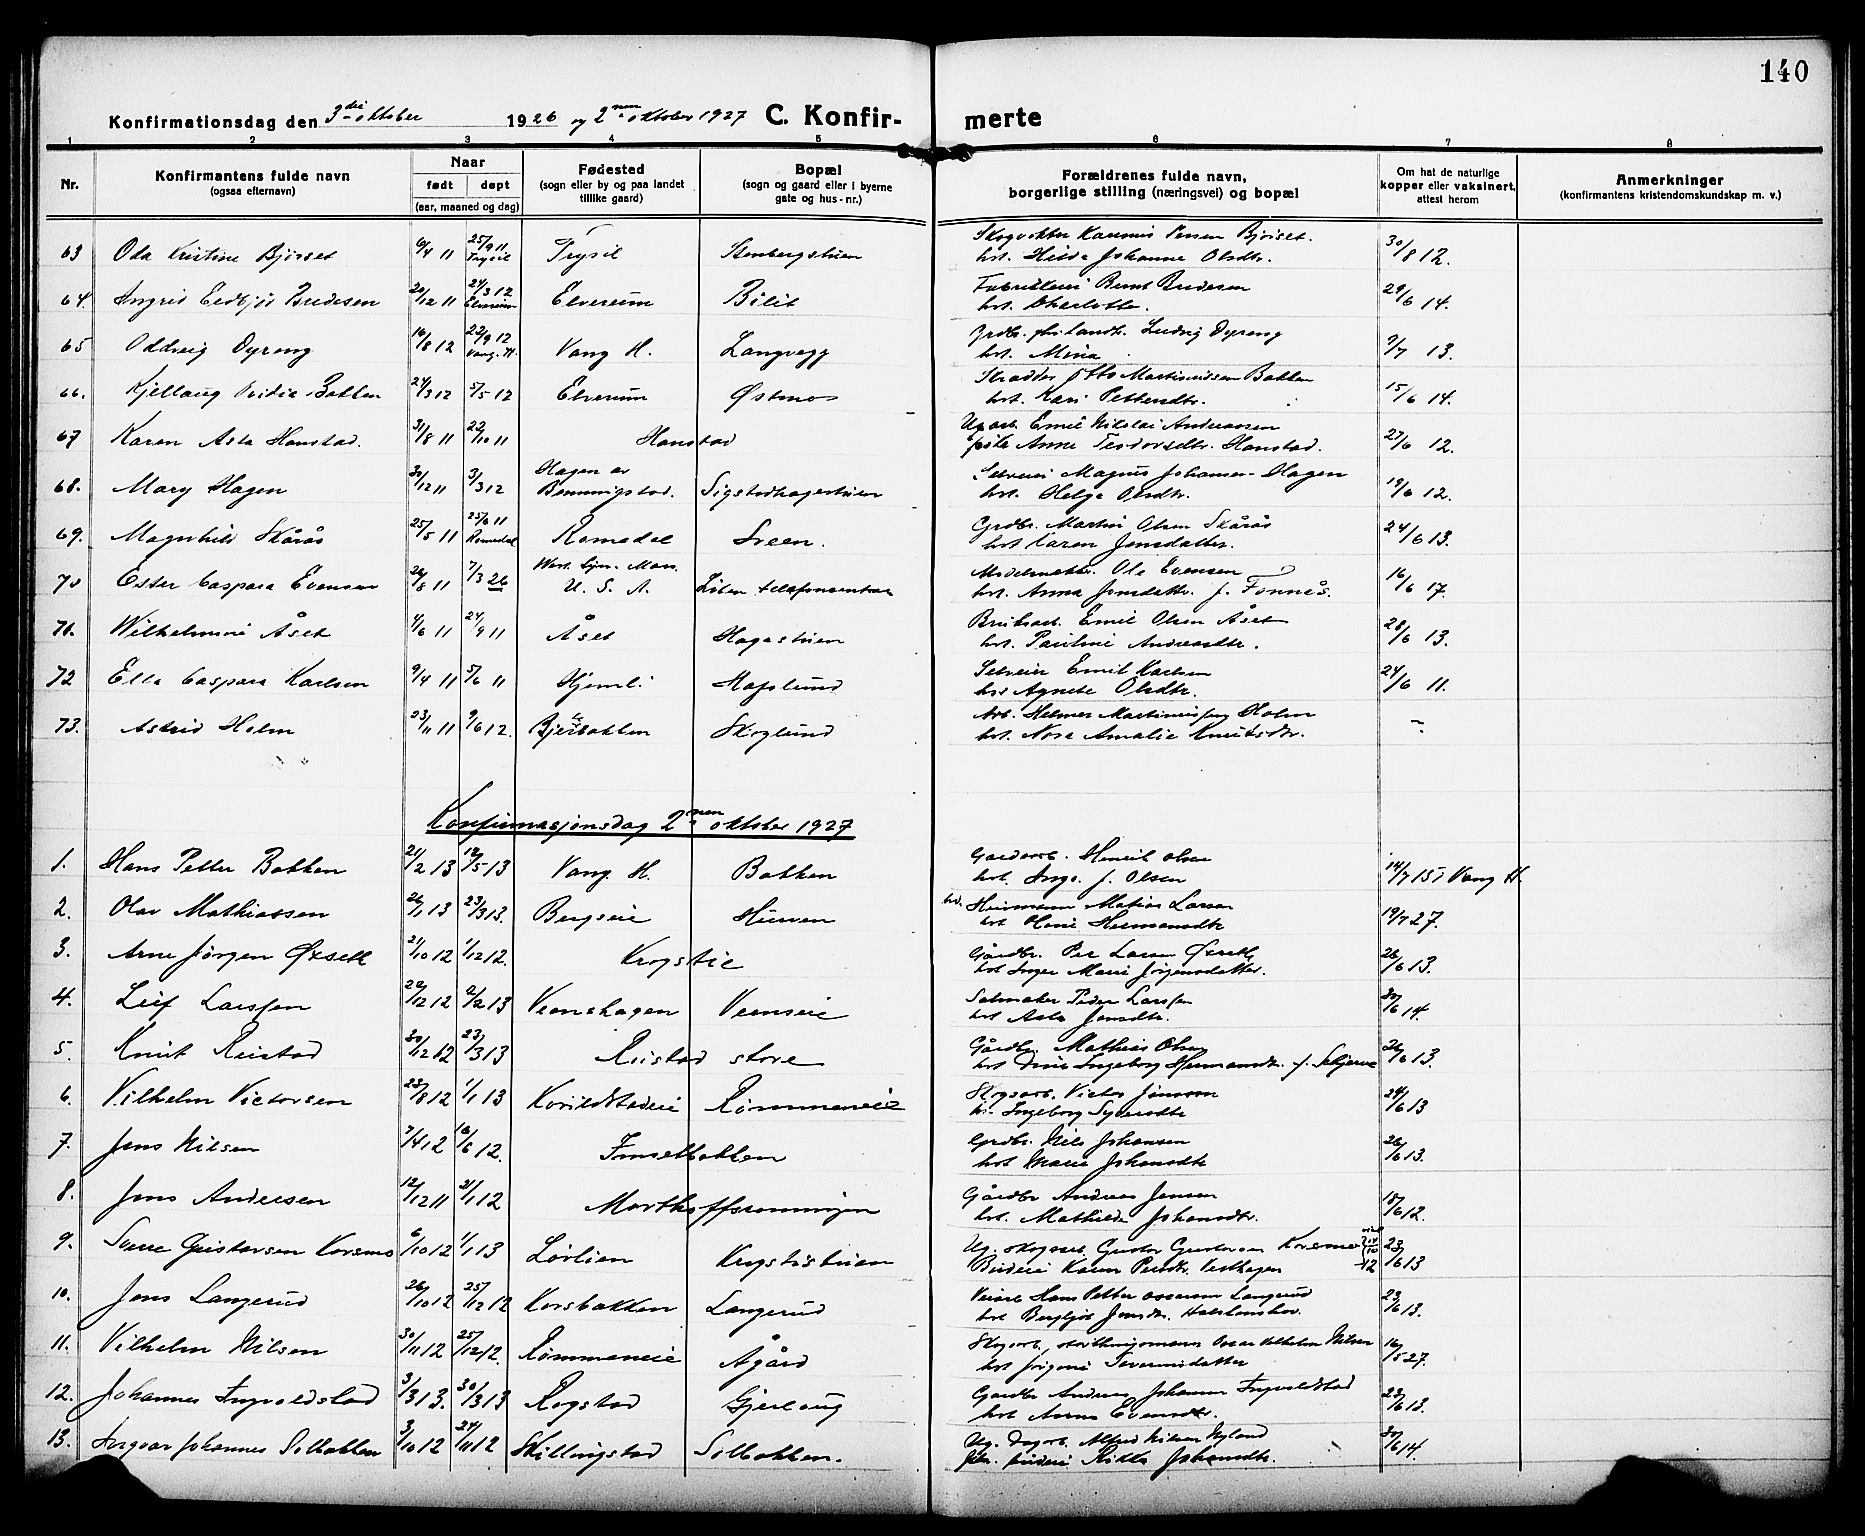 140
Konfirmationsdag den 3die oktober 1926 og 2nen oktober 1927 C. Konfirmerte
1 2 3 4 5 6 7 8
Nr. Konfirmantens fulde navn (ogsaa efternavn) Naar født døpt (aar, maaned og dag) Fødested (sogn eller by og paa landet tillike gaard) Bopæl (sogn og gaard eller i byerne gate og hus-nr.) Forældrenes fulde navn, borgerlige stilling (næringsvei) og bopæl Om hat de naturlige kopper eller vaksinert, attest herom Anmerkninger (konfirmantens kristendomskundskap m. v.)
63 Oda Kristine Bjørset 6/4 11 25/9 11 Trysil Trysil Stenbergstuen Skogvokter Karenius Persen Bjørset. 30/8 12.
hst. Hilda Johanne Olsdtr.
64. Ingrid Eldbjør Budesen 20/12 11 24/3 12 Elverum Elverum Bilit Bernt Budesen 29/6 14.
hst. Charlotte.
65 Oddveig Dyreng 16/8 12 22/9 12 Vang. H. Vang H. Langvegg Grdbr. Ludvig Dyreng 9/7 13.
hst. Mina
66. Kjellaug Bakken 24/3 12 5/5 12 Elverum Østmo Skrædder Otto Martiniussen Bakken 15/6 14.
hst. Kari Pettersdtr.
67 Karen Asta Honstad. 31/8 11 22/10 11 Honstad Ug. arb. Emil Nikolai Anderssen 27/6 12.
pike Anne Teodorsdtr. Honstad.
68. Mary Hagen 30/12 11 3/3 12 Hagen av Benningstad. Sigstadhagestuen Selveier Magnus Johansen Hagen 19/6 12.
hst. Helga Olsdtr.
69. Magnhild Skårås 25/5 11 25/6 11 Romedal Romedal Sveen. Grdbr. Martin Olsen Skårås 24/6 13.
hst Karen Jensdatter.
70 Ester Caspara Evensen 26/8 11 7/3 26 West Lyn. Mass. U. S. A. Løten telefonsentral Ole Evensen 16/6 17.
hst. Anna Jensdattr. f. Fonnås.
71. Wilhelmine Åset 4/6 11 24/9 11 Åset Hagastuen Bruksarb. Emil Olsen Åset 28/6 13.
hst. Pauline Andreasdtr.
72 Ella Caspara Karlsen 9/4 11 5/6 11 Hjemli Hafslund Selveier Emil Karlsen 24/6 11.
hst Agnete Olsdtr.
73. Astrid Holm 23/11 11 9/6 12. Bjerbakken Skoglund Arb. Helmer Martiniussen Holm –
hst. Nora Amalie Knutsdtr.
Konfirmasjonsdag 2nen oktober 1927
1. Hans Petter Bakken 21/2 13 12/5 13 Vang. H. Bakken Gardarb. Henrik Olsen 14/7 15 i Vang H.
hst. Inga J. Olsen
2. Olav Mathiassen 26/1 13 23/3 13. Bergseie Hurven Husmann Matias Larsen 19/7 27.
hst Oline Hermansdtr
3. Arne Jørgen Øxseth 21/10 12 1/12 12. Krogstie Gårdbr. Per Larsen Øxseth 26/6 13.
hst Inger Marie Jørgensdatter.
4. Leif Larssen 29/12 12 2/2 13 Veenshagen Veenseie Salmaker Peder Larssen 30/6 14.
hst. Asta Jensdtr.
5. Knut Reistad 30/12 12 23/3 13 Reistad store Gårdbr. Mathias Olsen 26/6 13.
hst Dina Ingeborg Hermansdtr. f.
6. Vilhelm Victorsen 23/8 12 1/1 13 Korildstadeie Rømmeneie Skogsarb. Victor Jonsson 24/6 13
hst. Ingeborg Syversdtr
7. Jens Nilsen 7/4 12 16/6 12. Imsetbakken Grdbr. Nils Johansen 26/6 13.
hst Marie Johansdtr
8. Jens Andersen 12/12 11 21/1 12 Morthoffrønningen Gårdbr Andreas Jensen 18/6 12.
hst. Mathilde Johansdtr.
9. Sverre Gustavsen Korsmo 6/10 12 1/1 13 Lørlien Krogstistuen Ug. skogsarb. Gustav Gustavsen Korsmo 23/6 13
Budeie Karen Persdtr. Vesthagen
10. Jens Langerud 26/10 12 25/12 12 Korsbakken Langerud Hans Petter Langerud 23/6 13.
hst Bergljot Jensdtr. Halstenshov.
11. Vilhelm Nilsen 30/11 12 25/12 12. Rømmeneie Ågård Skogarb. Oscar Vilhelm Nilsen 16/5 27.
hst Jørgine
12. Johannes Ingvoldstad 3/3 13. 30/3 13 Rogstad Gjerlaug Gardbr Andreas Johannes Ingvoldstad 23/6 13.
hst Anna Evensdtr.
13. Ingvar Johannes Solbakken 3/10 12 24/11 12 Skillingstad Solbakken. Ug. Alfred Nilsen Nyland 30/6 14
Johansdtr.